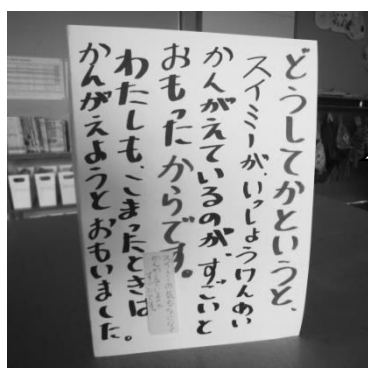 どうしてかというと、
スイミーが、いっしょうけんめい
かんがえているのが、すごいと
おもったからです。
わたしも、こまったときは
かんがえようとおもいました。